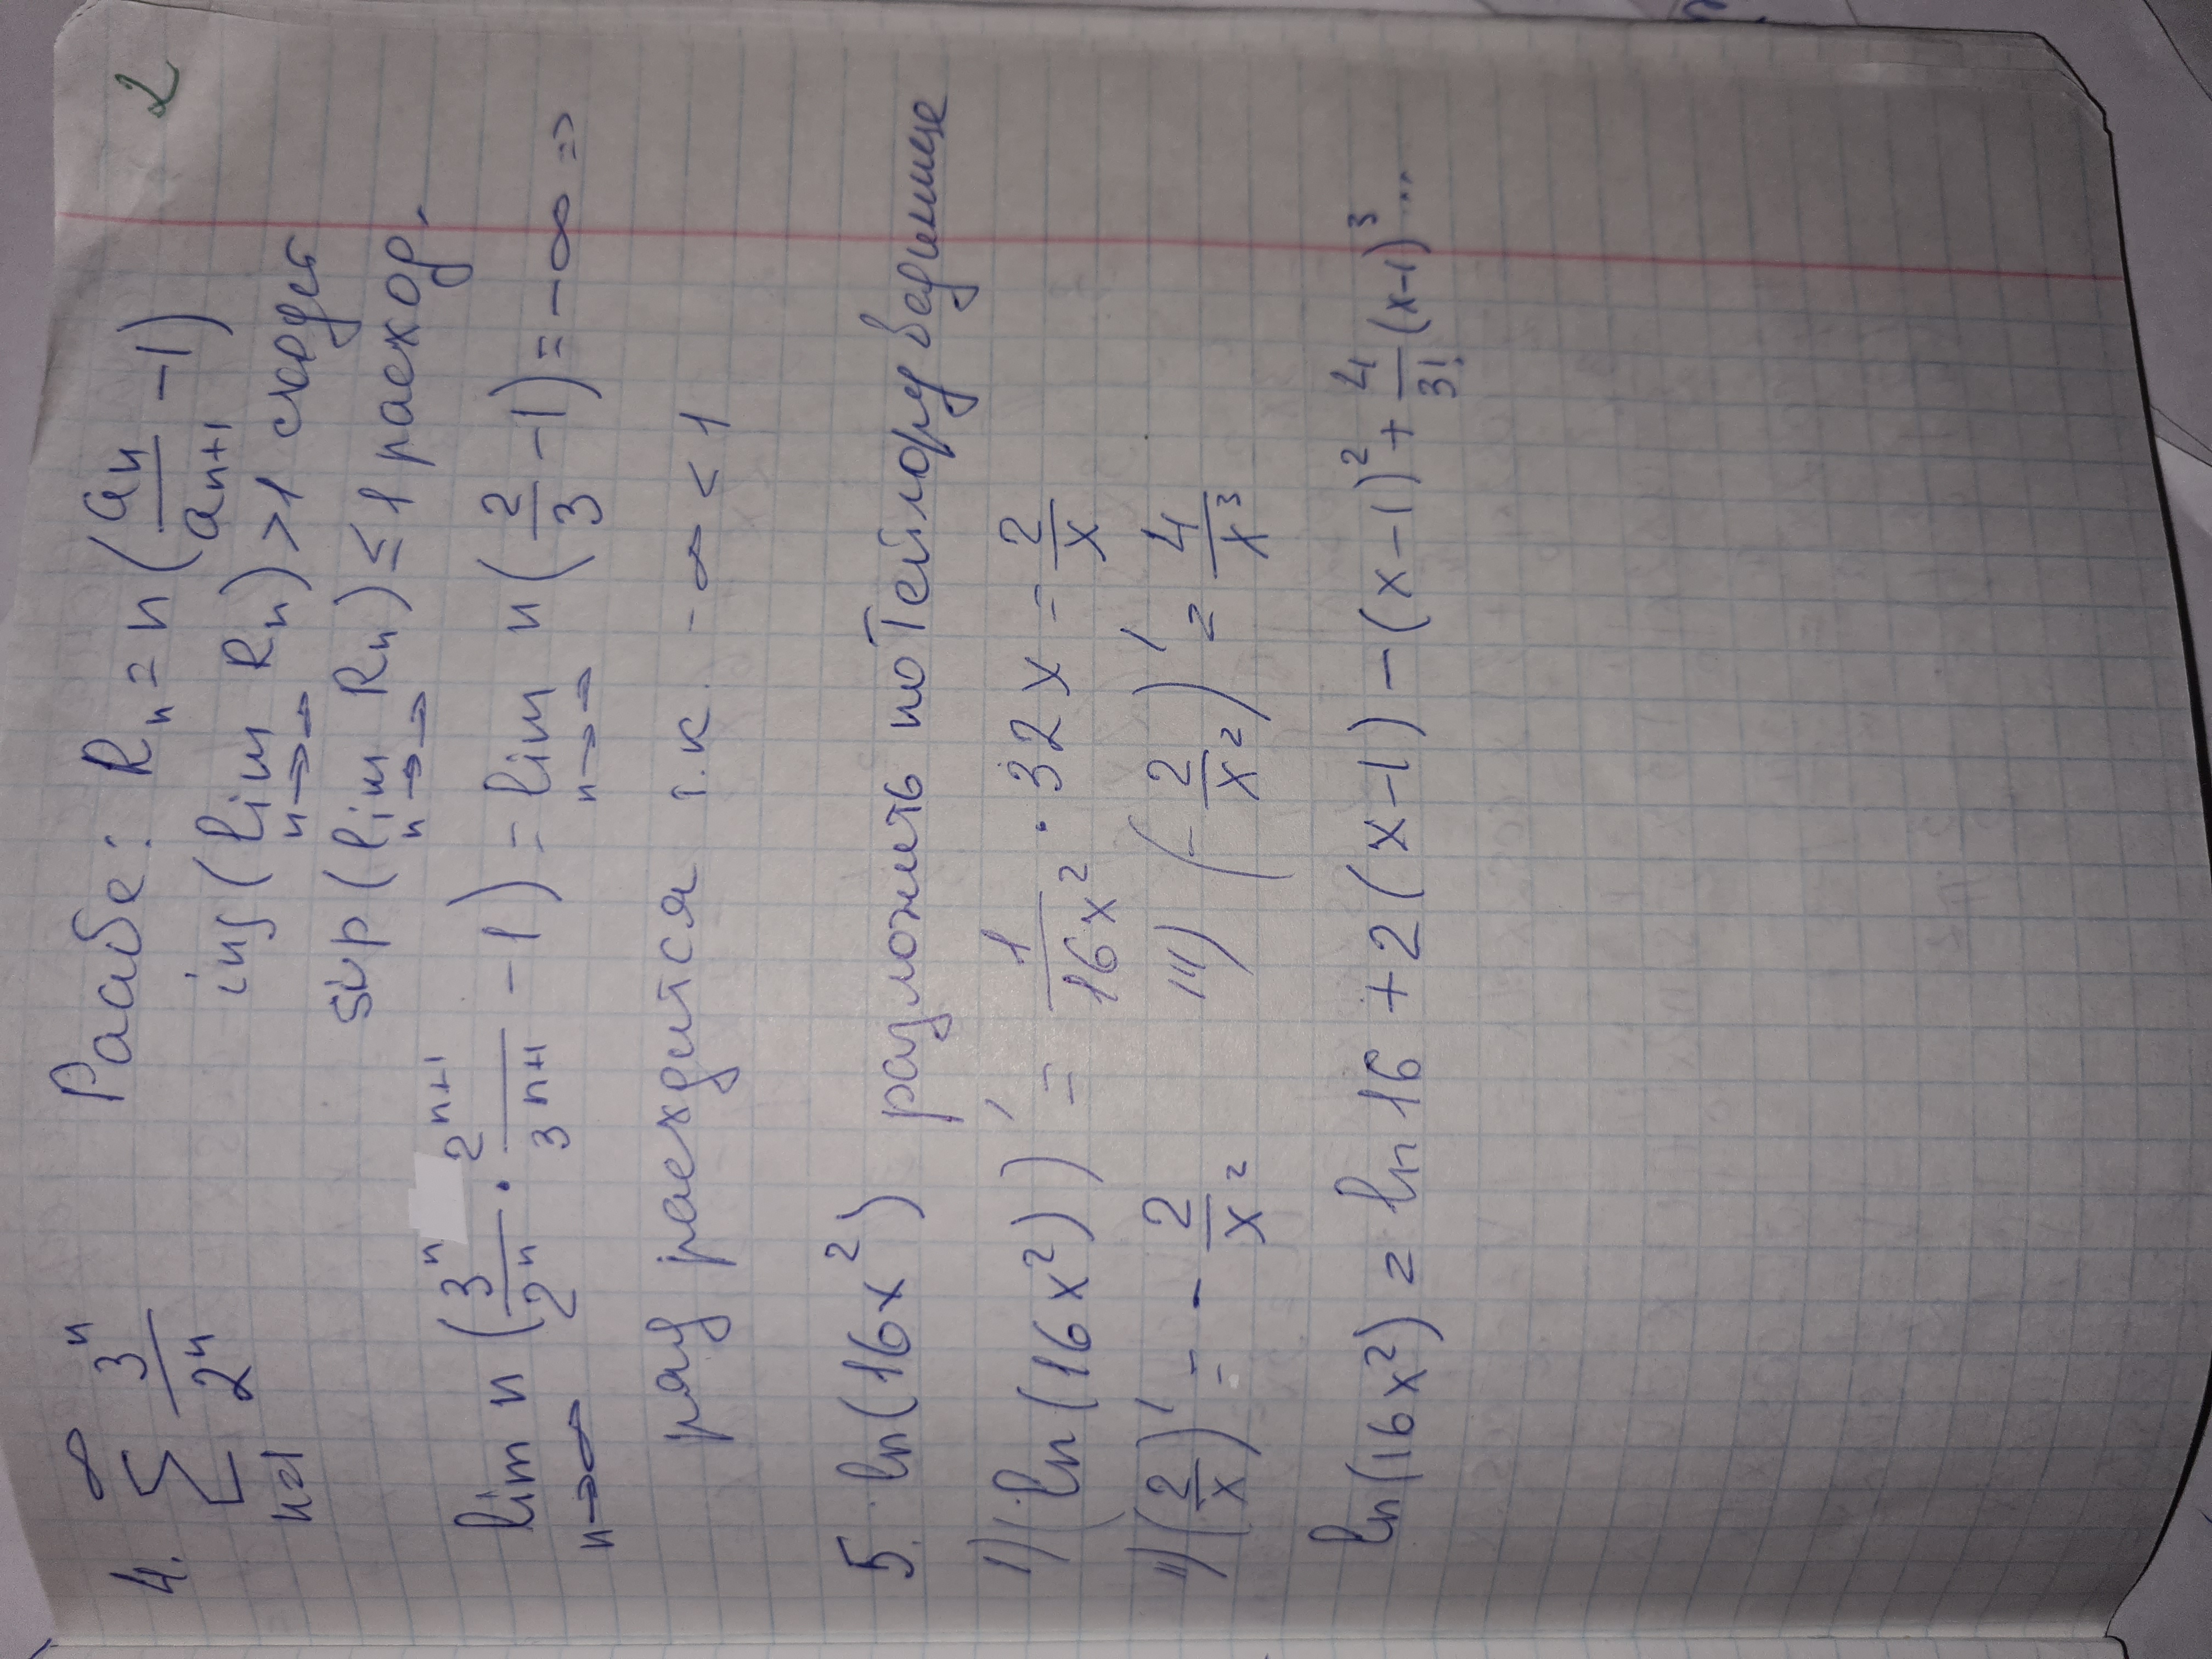 2
4. ∑_{n=1}^{∞} 3^n/2^n Раабе: R_n = n(a_n/a_{n+1} - 1)
inf(lim_{n→∞} R_n) > 1 сходет
sup(lim_{n→∞} R_n) ≤ 1 расход.
lim_{n→∞} n(3^n/2^n · 2^{n+1}/3^{n+1} - 1) = lim_{n→∞} n(2/3 - 1) = -∞ ⇒
ряд расходится т.к. -∞ < 1
5. ln(16x²) разложить по Тейлору в единице
I) (ln(16x²))' = 1/(16x²) · 32x = 2/x
II) (2/x)' = - 2/x² III) (- 2/x²)' = 4/x³
ln(16x²) = ln 16 + 2(x-1) - (x-1)² + 4/3! (x-1)³ ...